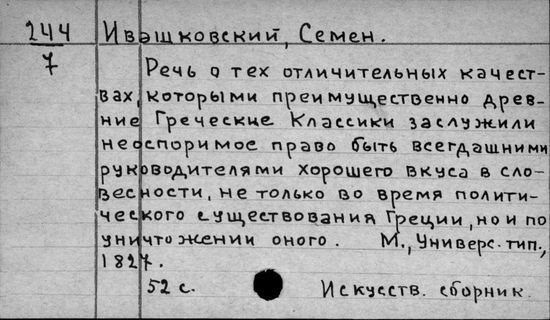 244 Ивашковский, Семен.
7
Речь о тех отличительных качест-
вах, которыми преимущественно древ-
ние Греческие Классики заслужили
неоспоримое право быть всегдашними
руководителями хорошего вкуса в сло-
весности, не только во время полити-
ческого существования Греции, но и по
уничтожении оного. М., Универс. тип.,
1827.
52 с. Искусств. сборник.